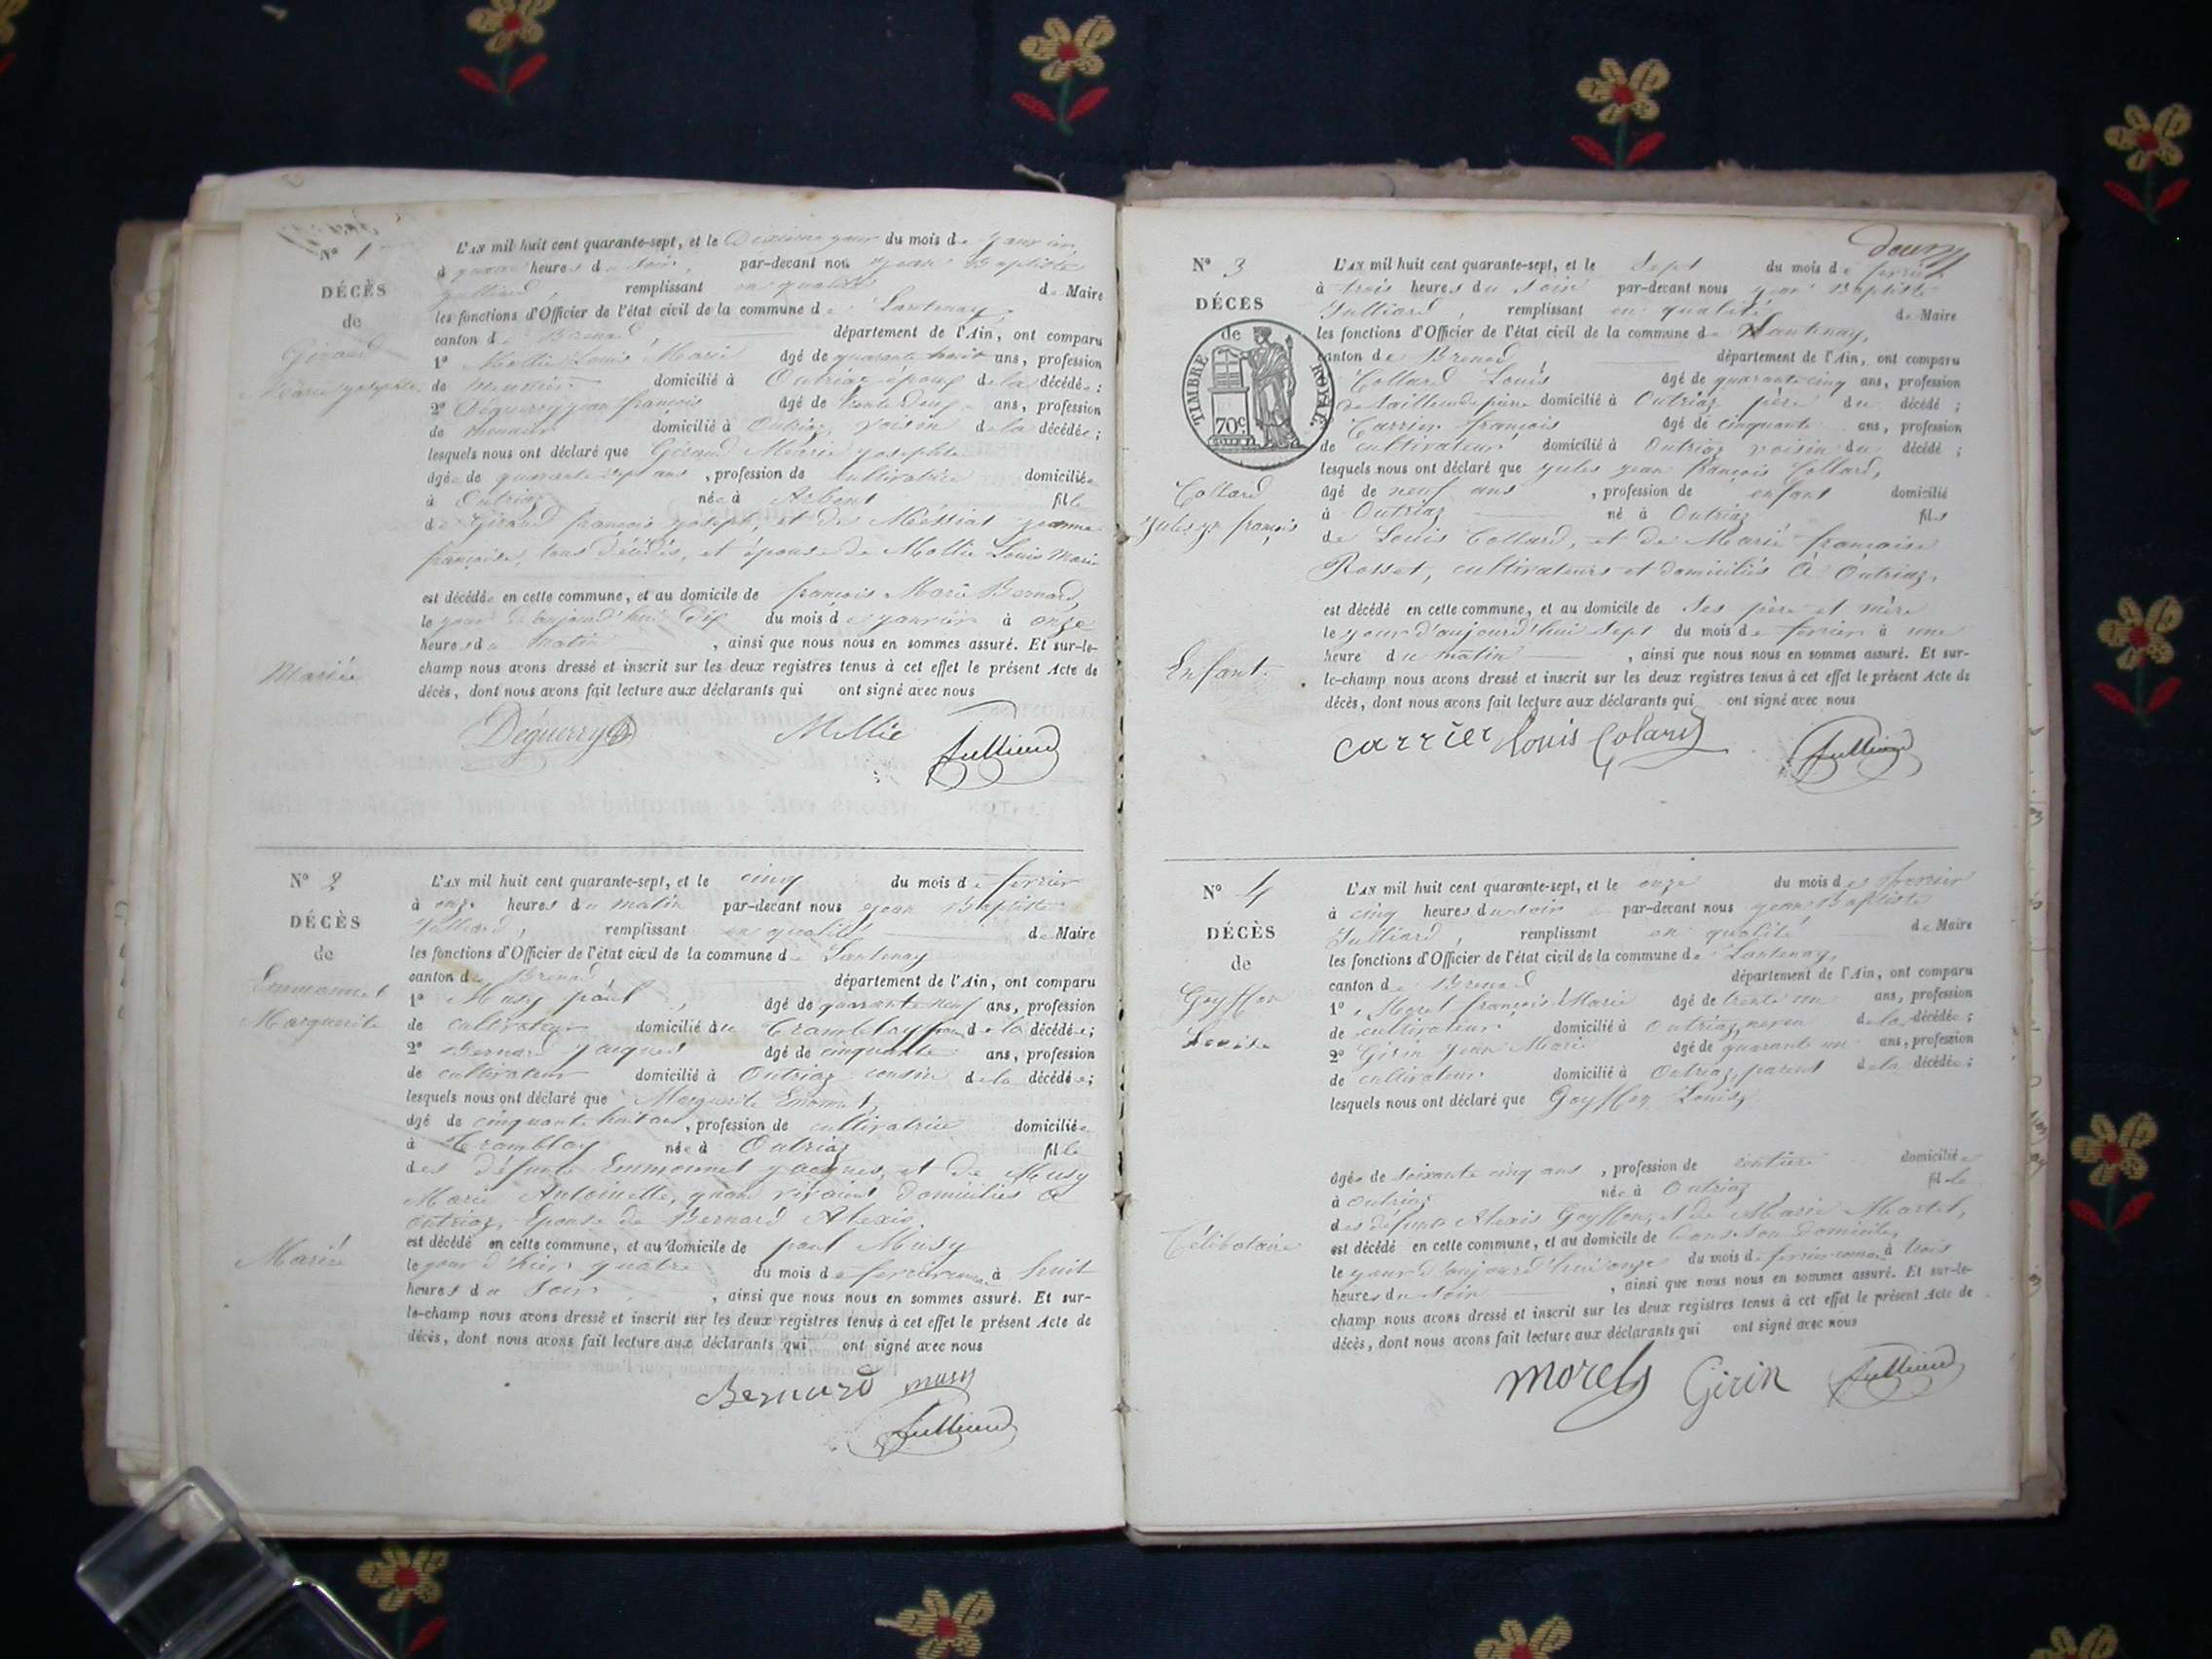 Nº 1
DÉCÈS
de
Géraud
Marie Josephte
Mariée
L'AN mil huit cent quarante-sept, et le Dixième jour du mois de Janvier
à quatre heures du soir, par-devant nous Jean Baptiste
Julliard, remplissant en qualité de Maire
les fonctions d'Officier de l'état civil de la commune de Lantenay,
canton de Brenod département de l'Ain, ont comparu
1º Mollie Louis Marie âgé de quarante huit ans, profession
de domicilié à Outriaz époux de la décédée;
2º Déguerry jean françois âgé de trente deux ans, profession
de domicilié à Outriaz, voisin de la décédée;
lesquels nous ont déclaré que Géraud Marie josephte
âgée de quarante sept ans, profession de cultivatrice domiciliée
à Outriaz née à Arbent fille
de Géraud françois joseph, et de Messiat jeanne
françoise, tous décédés, et épouse de Mollie Louis Marie
est décédée en cette commune, et au domicile de françois Marie Bernard
le jour d'aujourd'hui dix du mois de janvier à onze
heures du matin, ainsi que nous nous en sommes assuré. Et sur-le-
champ nous avons dressé et inscrit sur les deux registres tenus à cet effet le présent Acte de
décès, dont nous avons fait lecture aux déclarants qui ont signé avec nous
Déguerry Mollie Julliard
Nº 2
DÉCÈS
de
Emmonnet
Marguerite
Mariée
L'AN mil huit cent quarante-sept, et le cinq du mois de fevrier
à onze heures du matin par-devant nous jean Baptiste
Julliard, remplissant en qualité de Maire
les fonctions d'Officier de l'état civil de la commune de Lantenay
canton de Brenod département de l'Ain, ont comparu
1º Musy paul, âgé de quarante neuf ans, profession
de cultivateur domicilié au Tramblay de la décédée;
2º Bernard jacques âgé de cinquante ans, profession
de cultivateur domicilié à Outriaz cousin de la décédée;
lesquels nous ont déclaré que Marguerite Emonnet,
âgé de cinquante huit ans, profession de cultivatrice domiciliée
à Tramblay née à Outriaz fille
des défunts Emmonnet jacques, et de Musy
Marie Antoinette, quand vivaient domiciliés à
outriaz, Epouse de Bernard Alexis.
est décédé en cette commune, et au domicile de paul Musy
le jour d'hier quatre du mois de fevrier à huit
heures du soir, ainsi que nous nous en sommes assuré. Et sur-
le-champ nous avons dressé et inscrit sur les deux registres tenus à cet effet le présent Acte de
décès, dont nous avons fait lecture aux déclarants qui ont signé avec nous
Bernard musy
Julliard
Nº 3
DÉCÈS
de
TIMBRE ROYAL.
70c
Collard
Jules jn françois
Enfant.
L'AN mil huit cent quarante-sept, et le Sept du mois de fevrier
à trois heures du soir par-devant nous jean Baptiste
Julliard, remplissant en qualité de Maire
les fonctions d'Officier de l'état civil de la commune de Lantenay,
canton de Brenod département de l'Ain, ont comparu
Collard Louis âgé de quarante cinq ans, profession
de tailleur de pierre domicilié à Outriaz père du décédé;
Carrier françois âgé de cinquante ans, profession
de cultivateur domicilié à Outriaz voisin du décédé;
lesquels nous ont déclaré que jules jean françois Collard,
âgé de neuf ans, profession de enfant domicilié
à Outriaz né à Outriaz fils
de Louis Collard, et de Marie françoise
Rosset, cultivateurs et domiciliés à Outriaz,
est décédé en cette commune, et au domicile de ses père et mère
le jour d'aujourd'hui sept du mois de fevrier à une
heure du matin, ainsi que nous nous en sommes assuré. Et sur-
le-champ nous avons dressé et inscrit sur les deux registres tenus à cet effet le présent Acte de
décès, dont nous avons fait lecture aux déclarants qui ont signé avec nous
carrier Louis Colard Julliard
Nº 4
DÉCÈS
de
Goyffon
Louise
Célibataire
L'AN mil huit cent quarante-sept, et le onze du mois de fevrier
à cinq heures du soir par-devant nous jean Baptiste
Julliard, remplissant en qualité de Maire
les fonctions d'Officier de l'état civil de la commune de Lantenay,
canton de Brenod département de l'Ain, ont comparu
1º Morel françois Marie âgé de trente un ans, profession
de cultivateur domicilié à Outriaz, neveu de la décédée;
2º Girin jean Marie âgé de quarante un ans, profession
de cultivateur domicilié à Outriaz, parent de la décédée;
lesquels nous ont déclaré que Goyffon Louise
âgée de soixante cinq ans, profession de rentière domiciliée
à Outriaz née à Outriaz fille
des défunts Alexis Goyffon, et de Marie Martel,
est décédé en cette commune, et au domicile de dans son domicile,
le jour d'aujourd'hui onze du mois de fevrier à trois
heures du soir, ainsi que nous nous en sommes assuré. Et sur-le-
champ nous avons dressé et inscrit sur les deux registres tenus à cet effet le présent Acte de
décès, dont nous avons fait lecture aux déclarants qui ont signé avec nous
morel Girin Julliard